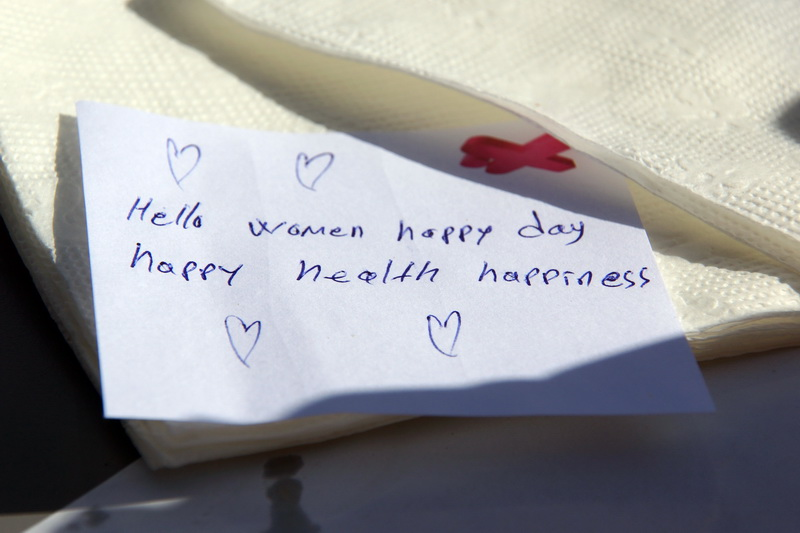 Hello women happy day
happy health happiness